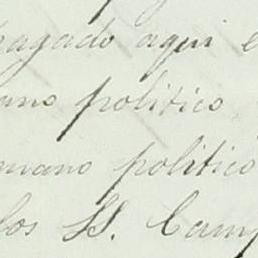 pagado aqui e
ano politico
mano politico
los H. Camp